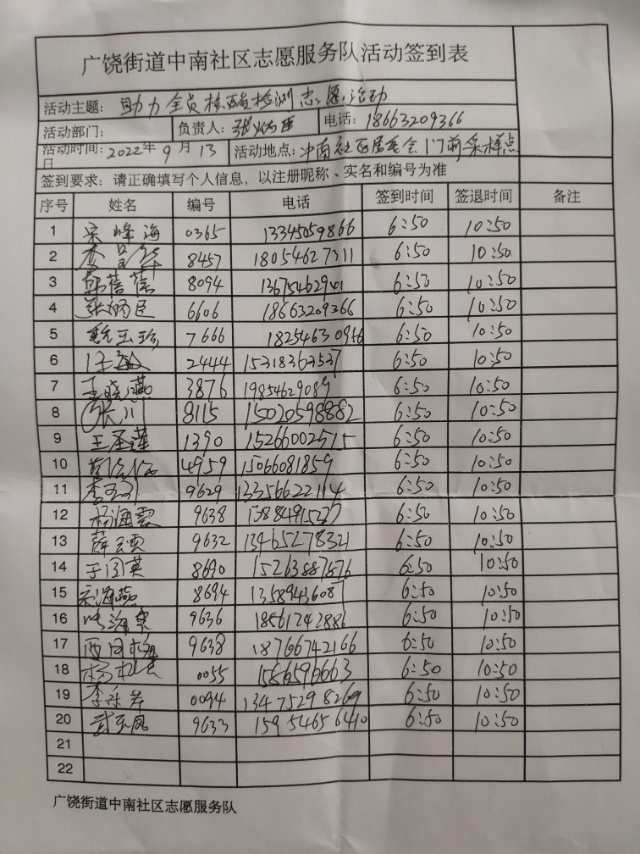 广饶街道中南社区志愿服务队活动签到表
活动主题: 助力全员核酸检测志愿活动
活动部门: 负责人: 张炳臣 电话: 18663209366
活动时间: 2022年9月13日 活动地点: 中南社区居委会门前采样点
签到要求: 请正确填写个人信息, 以注册昵称、实名和编号为准
序号 姓名 编号 电话 签到时间 签退时间 备注
1 宋峰海 0365 13345059866 6:50 10:50
2 8457 18054627311 6:50 10:50
3 韩蓓蓓 8094 6:50 10:50
4 张炳臣 6606 18663209366 6:50 10:50
5 魏玉珍 7666 18254630956 6:50 10:50
6 汪敏 2444 15318363537 6:50 10:50
7 王晓燕 3876 19854629089 6:50 10:50
8 张川 8115 15020598882 6:50 10:50
9 王圣莲 1390 15266002515 6:50 10:50
10 4959 15066081859 6:50 10:50
11 9629 13356622114 6:50 10:50
12 杨海霞 9638 6:50 10:50
13 薛云霞 9632 13465278321 6:50 10:50
14 于国英 8690 15263887876 6:50 10:50
15 宋海燕 8694 13589436087 6:50 10:50
16 9636 18561242886 6:50 10:50
17 9638 18766742166 6:50 10:50
18 0055 6:50 10:50
19 0094 13475298269 6:50 10:50
20 武玉凤 9633 15954656410 6:50 10:50
21
22
广饶街道中南社区志愿服务队